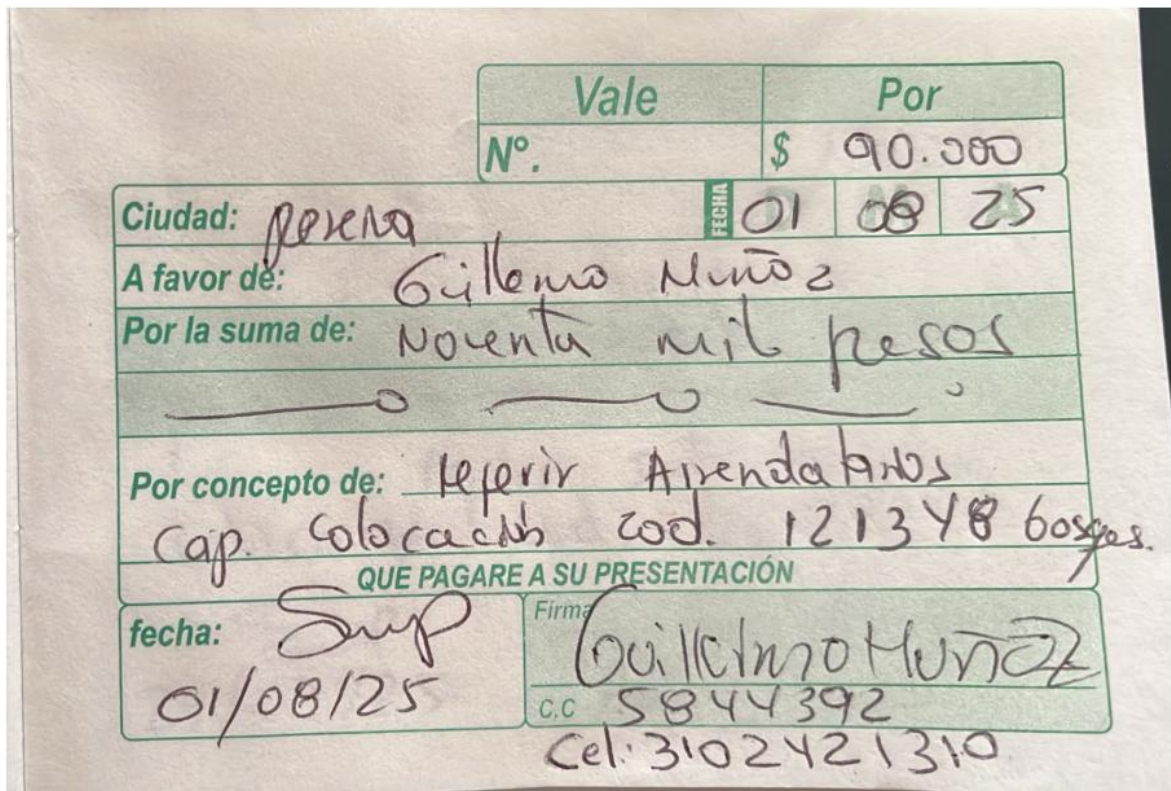 Vale Por
Nº. $ 90.000
Ciudad: Pereira FECHA 01 08 25
A favor de: Guillermo Muñoz
Por la suma de: Noventa mil pesos
Por concepto de: referir Arrendatarios
Cap. Colocación cod. 121348 bosques.
QUE PAGARE A SU PRESENTACIÓN
fecha: Firma Guillermo Muñoz
01/08/25 C.C 5844392
Cel: 3102421310